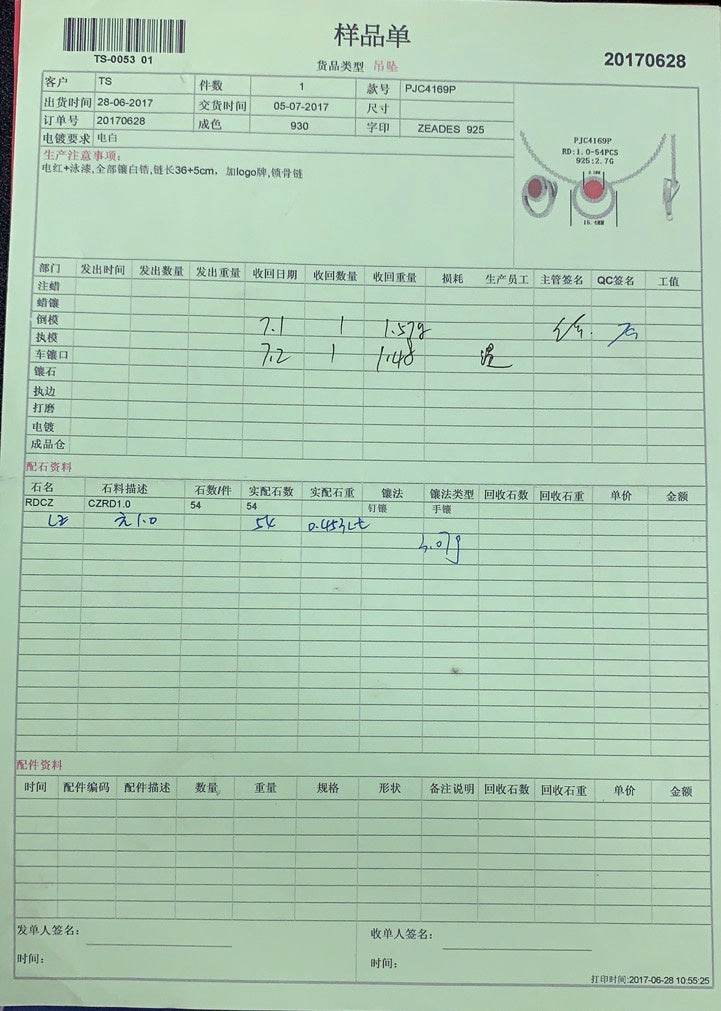 样品单
TS-0053 01
货品类型 吊坠
20170628
客户 TS 件数 1 款号 PJC4169P
出货时间 28-06-2017 交货时间 05-07-2017 尺寸
订单号 20170628 成色 930 字印 ZEADES 925
电镀要求 电白
生产注意事项:
电红+泳漆,全部镶白锆,链长36+5cm, 加logo牌,锁骨链
PJC4169P
RD:1.0-54PCS
925:2.7G
部门 发出时间 发出数量 发出重量 收回日期 收回数量 收回重量 损耗 生产员工 主管签名 QC签名 工值
注蜡
蜡镶
倒模 7.1 1 1.57g
执模
车镶口 7.2 1 1.48
镶石
执边
打磨
电镀
成品仓
配石资料
石名 石料描述 石数/件 实配石数 实配石重 镶法 镶法类型 回收石数 回收石重 单价 金额
RDCZ CZRD1.0 54 54 钉镶 手镶
1.0 54
配件资料
时间 配件编码 配件描述 数量 重量 规格 形状 备注说明 回收石数 回收石重 单价 金额
发单人签名: 收单人签名:
时间: 时间:
打印时间:2017-06-28 10:55:25